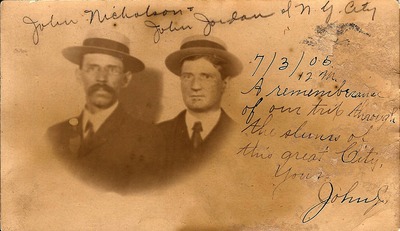 John Nicholson & John Jordan of N.Y. City
7/3/05
12 M.
A rememberance
of our trip through
the slums of
this great City.
Yours
John J.